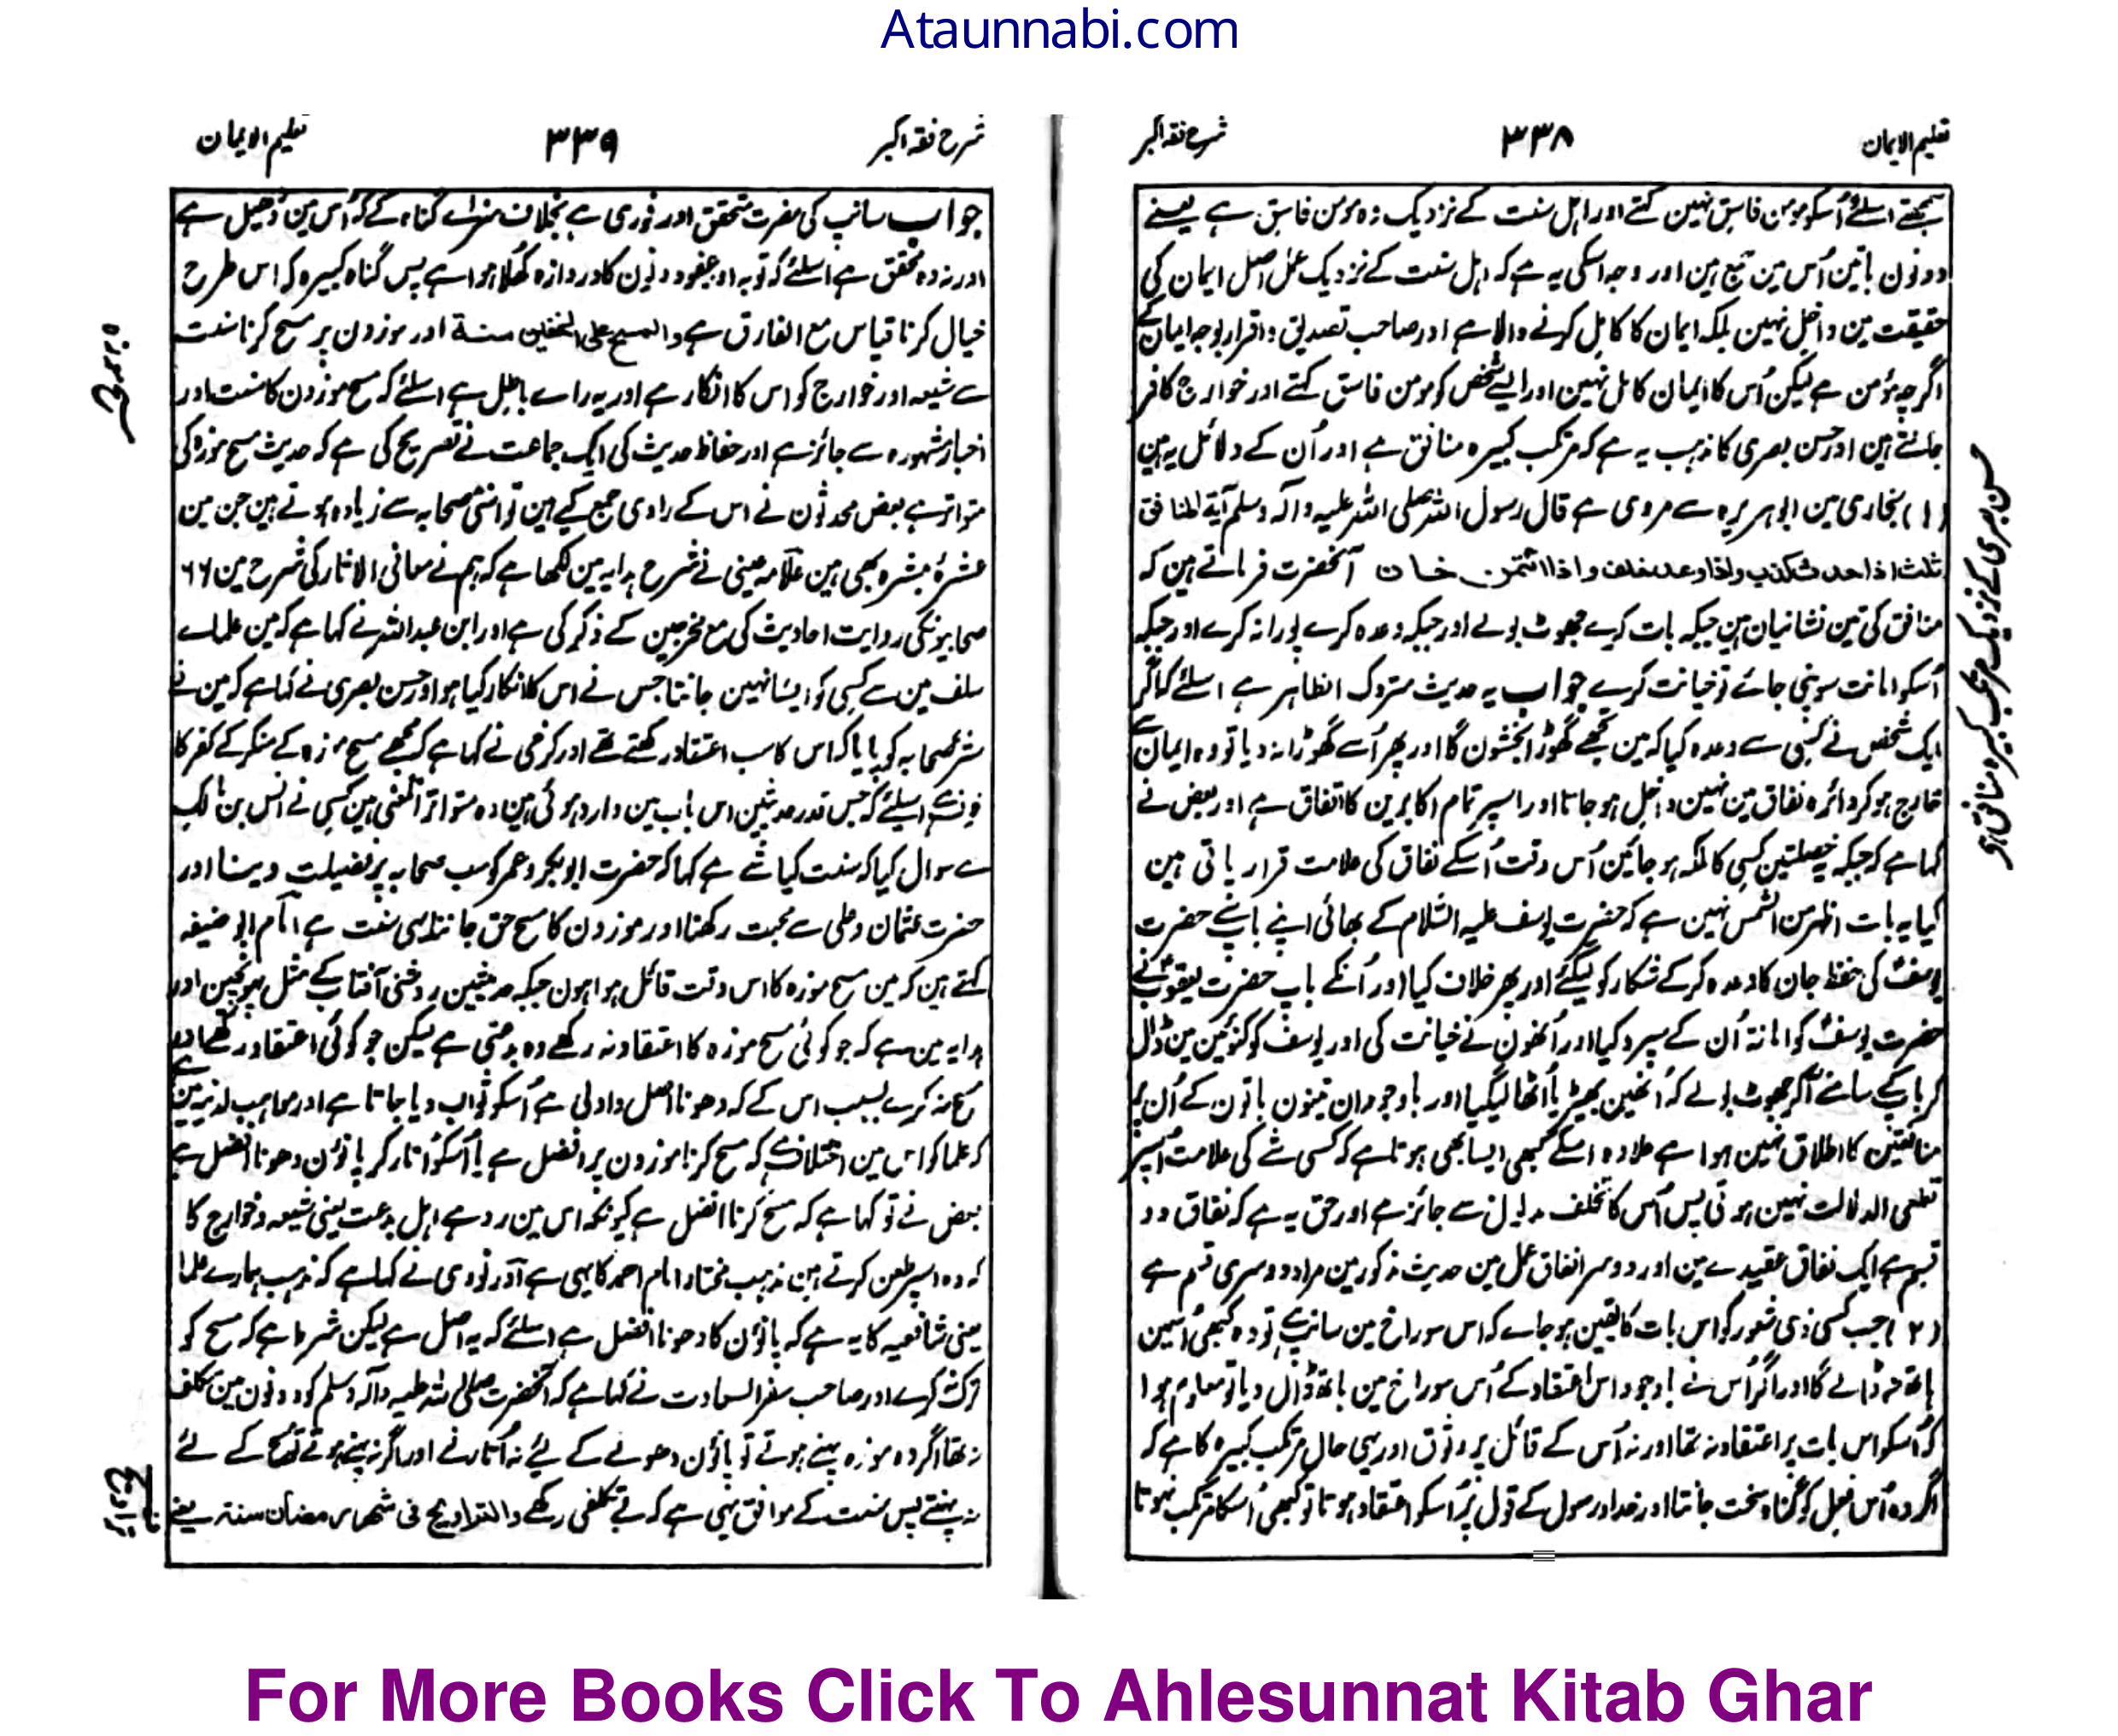 Ataunnabi.com
تعلیم الایمان
۳۳۸
شرح فقہ اکبر
سمجھتے اسلئے اُسکو مومن فاسق نہین کہتے اور اہل سنت کے نزدیک وہ مومن فاسق ہے یعنے
دونون باتین اُس مین جمع ہین اور وجہ اسکی یہ ہے کہ اہل سنت کے نزدیک عمل اصل ایمان کی
حقیقت مین داخل نہین بلکہ ایمان کا کامل کرنے والا ہے اور صاحب تصدیق و اقرار بوجہ ایمان کے
اگرچہ مؤمن ہے لیکن اُس کا ایمان کامل نہین اور ایسے شخص کو مومن فاسق کہتے اور خوارج کافر
جانتے ہین اور حسن بصری کا مذہب یہ ہے کہ مرتکب کبیرہ منافق ہے اور اُن کے دلائل یہ ہین
(۱) بخاری مین ابوہریرہ سے مروی ہے قال رسول اللہ صلی اللہ علیہ وآلہ وسلم آیۃ المنافق
ثلث اذا حدث کذب واذا وعد خلف واذا ائتمن خان آنحضرت فرماتے ہین کہ
منافق کی تین نشانیان ہین جبکہ بات کرے جھوٹ بولے اور جبکہ وعدہ کرے پورا نہ کرے اور جبکہ
اُسکو امانت سونپی جائے تو خیانت کرے جواب یہ حدیث متروک الظاہر ہے اسلئے کہ اگر
ایک شخص نے کسی سے وعدہ کیا کہ مین تجھے گھوڑا بخشون گا اور پھر اُسے گھوڑا نہ دیا تو وہ ایمان سے
خارج ہوکر دائرہ نفاق مین نہین داخل ہوجاتا اور اسپر تمام اکابرین کا اتفاق ہے اور بعض نے
کہا ہے کہ جبکہ یہ خصلتین کسی کا ملکہ ہوجائین اُس وقت اُسکے نفاق کی علامت قرار پاتی ہین
کیا یہ بات اظہر من الشمس نہین ہے کہ حضرت یوسف علیہ السّلام کے بھائی اپنے باپ سے حضرت
یوسفؑ کی حفظ جان کا وعدہ کرکے شکار کو لیگئے اور پھر خلاف کیا اور اُنکے باپ حضرت یعقوبؑ نے
حضرت یوسفؑ کو امانۃً اُن کے سپرد کیا اور اُنھون نے خیانت کی اور یوسف کو کنوئین مین ڈال
کر باپ کے سامنے آکر جھوٹ بولے کہ اُنھین بھیڑیا اُٹھا لیگیا اور باوجود ان تینون باتون کے اُن پر
منافقین کا اطلاق نہین ہوا ہے علاوہ اسکے کبھی ایسا بھی ہوتا ہے کہ کسی شے کی علامت اُسپر
قطعی الدلالت نہین ہوتی پس اُس کا تخلف مدلول سے جائز ہے اور حق یہ ہے کہ نفاق دو
قسم ہے ایک نفاق عقیدے مین اور دوسرا نفاق عمل مین حدیث مذکور مین مراد دوسری قسم ہے
(۲) جب کسی ذی شعور کو اس بات کا یقین ہوجاے کہ اس سوراخ مین سانپ ہے تو وہ کبھی اُسمین
ہاتھ نہ ڈالے گا اور اگر اُس نے باوجود اس اعتقاد کے اُس سوراخ مین ہاتھ ڈال دیا تو معلوم ہوا
کہ اُسکو اس بات پر اعتقاد نہ تھا اور نہ اُس کے قائل پر وثوق اور یہی حال مرتکب کبیرہ کا ہے کہ
اگر وہ اُس فعل کو گناہ سخت جانتا اور خدا و رسول کے قول پر اُسکو اعتقاد ہوتا تو کبھی اُسکا مرتکب نہوتا
حسن بصری کے نزدیک مرتکب کبیرہ منافق ہے
شرح فقہ اکبر
۳۳۹
تعلیم الایمان
جواب سانپ کی مضرت متحقق اور فوری ہے بخلاف سزاے گناہ کے کہ اُس مین ڈھیل ہے
اور نہ وہ محقق ہے اسلئے کہ توبہ اور عفو دونون کا دروازہ کُھلا ہوا ہے پس گناہ کبیرہ کہ اس طرح
خیال کرنا قیاس مع الفارق ہے والمسح علی الخفین سنۃ اور موزون پر مسح کرنا سنت
ہے شیعہ اور خوارج کو اس کا انکار ہے اور یہ راے باطل ہے اسلئے کہ مسح موزون کا سنت اور
اخبار مشہورہ سے جائز ہے اور حفاظ حدیث کی ایک جماعت نے تصریح کی ہے کہ حدیث مسح موزہ کی
متواتر ہے بعض محدثون نے اس کے راوی جمع کیے ہین تو اسّی صحابہ سے زیادہ ہوتے ہین جن مین
عشرۂ مبشرہ بھی ہین علّامہ عینی نے شرح ہدایہ مین لکھا ہے کہ ہم نے معانی الآثار کی شرح مین ۶۶
صحابیونکی روایت احادیث کی مع مخرجین کے ذکر کی ہے اور ابن عبداللہ نے کہا ہے کہ مین علماے
سلف مین سے کسی کو ایسا نہین جانتا جس نے اس کا انکار کیا ہو اور حسن بصری نے کہا ہے کہ مین نے
ستّر صحابہ کو پایا کہ اس کا سب اعتقاد رکھتے تھے اور کرخی نے کہا ہے کہ مجھے مسح موزہ کے منکر کے کفر کا
خوف ہے اسلئے کہ جس قدر حدیثین اس باب مین وارد ہوئی ہین وہ متواتر المعنی ہین کسی نے انس بن مالک
سے سوال کیا کہ سنت کیا شے ہے کہا کہ حضرت ابوبکر و عمر کو سب صحابہ پر فضیلت دینا اور
حضرت عثمان و علی سے محبت رکھنا اور موزون کا مسح حق جاننا یہی سنت ہے امام ابو حنیفہ
کہتے ہین کہ مین مسح موزہ کا اس وقت قائل ہوا ہون جبکہ حدیثین روشنی آفتاب کے مثل پہونچین اور
ہدایہ مین ہے کہ جو کوئی مسح موزہ کا اعتقاد نہ رکھے وہ بدعتی ہے لیکن جو کوئی اعتقاد رکھے اور
مسح نہ کرے بسبب اس کے کہ دھونا اصل و اولی ہے اُسکو ثواب دیا جاتا ہے اور مواہب لدنیہ مین ہے
کہ علما کو اس مین اختلاف ہے کہ مسح کرنا موزون پر افضل ہے یا اُسکو اُتار کر پاؤن دھونا افضل ہے
بعض نے تو کہا ہے کہ مسح کرنا افضل ہے کیونکہ اس مین رد ہے اہل بدعت یعنی شیعہ و خوارج کا
کہ وہ اسپر طعن کرتے ہین مذہب مختار امام احمد کا یہی ہے اور نووی نے کہا ہے کہ مذہب ہمارے علما
یعنی شافعیہ کا یہ ہے کہ پاؤن کا دھونا افضل ہے اسلئے کہ یہ اصل ہے لیکن شرط ہے کہ مسح کو
ترک نہ کرے اور صاحب سفر السعادت نے کہا ہے کہ آنحضرت صلی اللہ علیہ وآلہ وسلم کو دونون مین تکلف
نہ تھا اگر وہ موزہ پہنے ہوتے تو پاؤن دھونے کے لیے نہ اُتارتے اور اگر نہ پہنے ہوتے تو مسح کے لئے
نہ پہنتے پس سنت کے موافق یہی ہے کہ بے تکلفی رکھے والتراویح فی شھر رمضان سنۃ یعنے
For More Books Click To Ahlesunnat Kitab Ghar